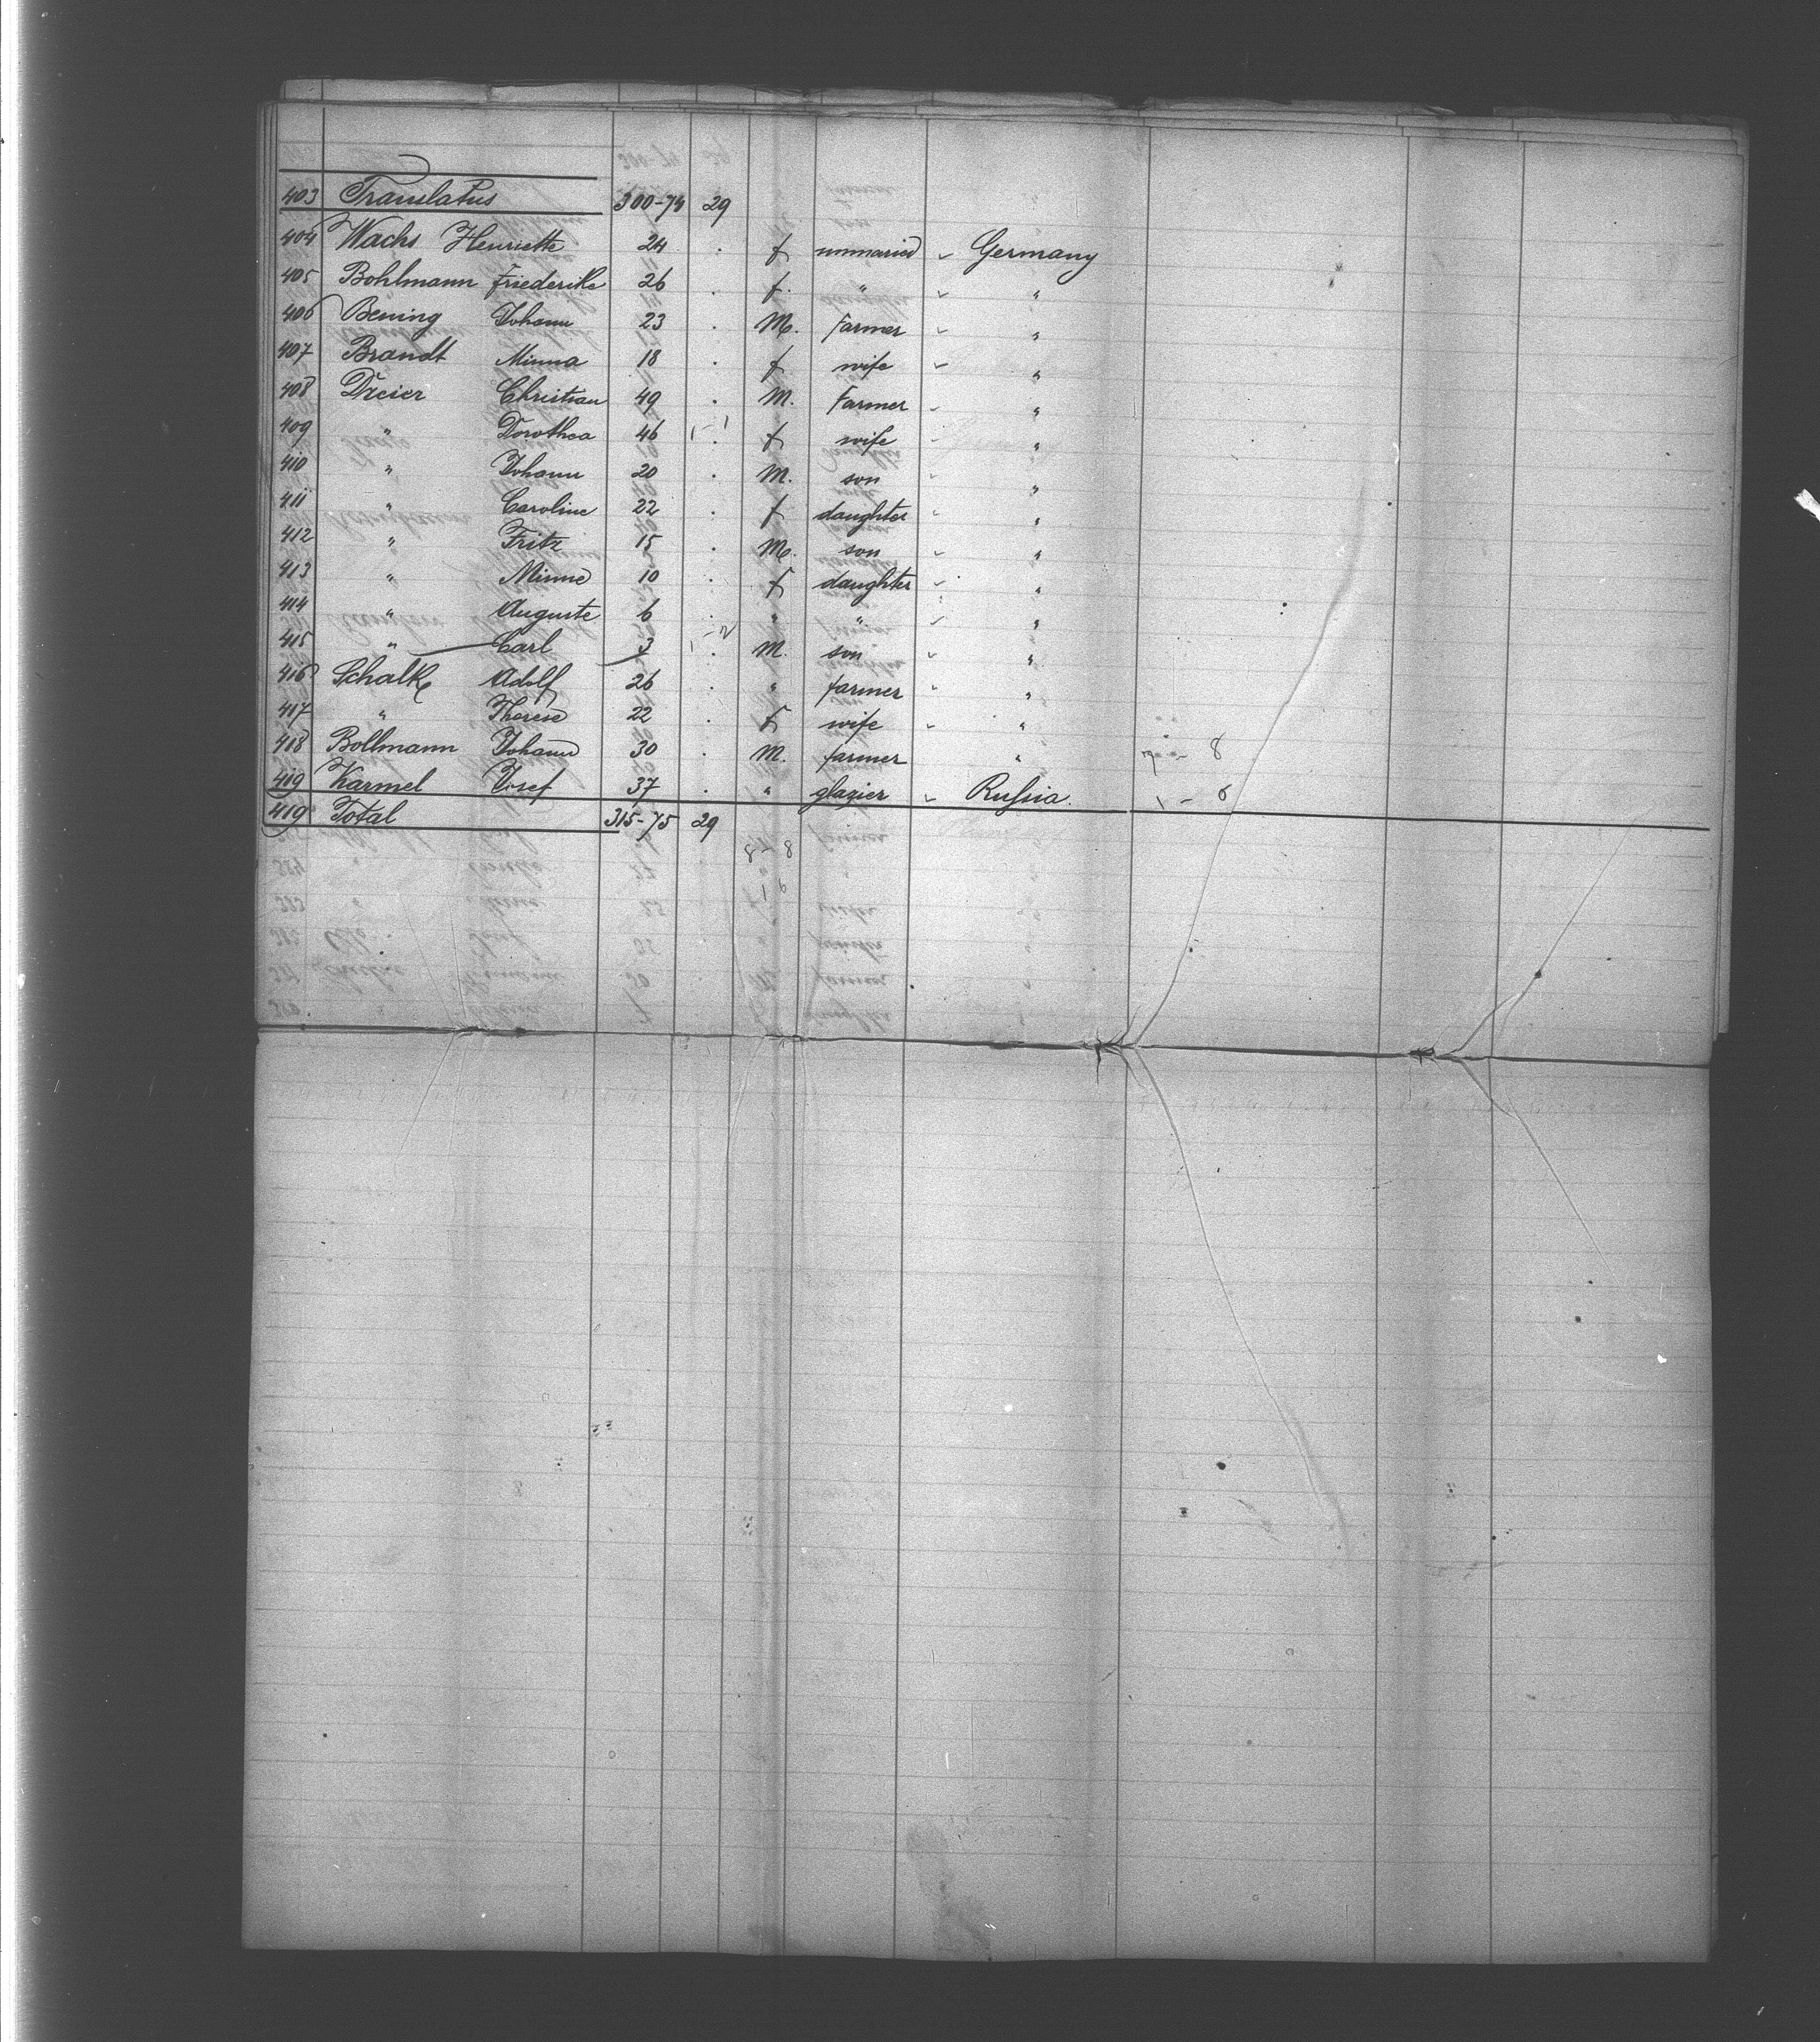 403 Translatus 300-74 29
404 Wachs Henriette 24 f unmaried Germany
405 Bohlmann Friederike 26 f. " "
406 Bening Johann 23 M. farmer "
407 Brandt Minna 18 f wife "
408 Dreier Christian 49 M. Farmer "
409 " Dorothea 46 f wife "
410 " Johann 20 M. son "
411 " Caroline 22 f daughter "
412 " Fritz 15 M. son "
413 " Minne 10 f daughter "
414 " Auguste 6 " " "
415 " Carl 3 M. son "
416 Schalk Adolf 26 " farmer "
417 " Therese 22 f wife "
418 Bollmann Johann 30 M. farmer " 7 - 8
419 Karmel Josef 37 " glazier Russia. 1 - 6
419 Total 315-75 29
8 - 8
1 6